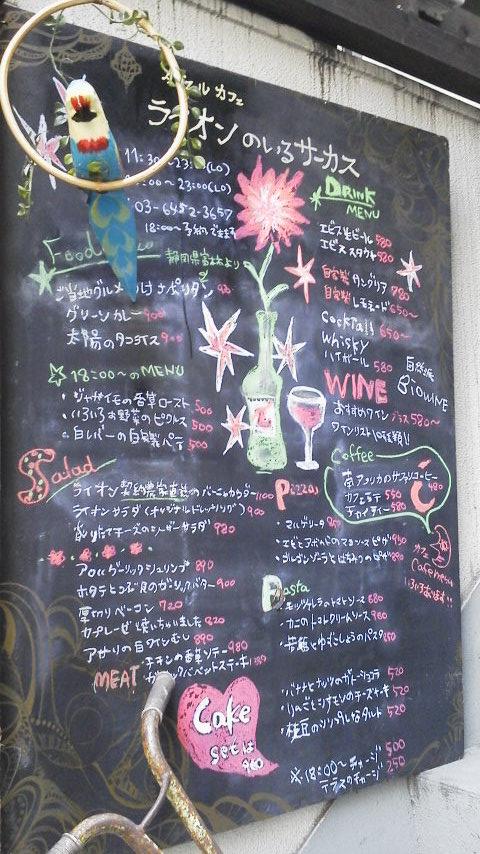 カフェ
ライオンのいるサーカス
11:30~23:00(LO)
~23:00(LO)
03-6452-3657
18:00~予約できます
Food
静岡県富士より
ご当地グルメ つけナポリタン
グリーンカレー 900
太陽のタコライス 900
18:00~のMENU
・ジャガイモの香草ロースト 500
・いろいろお野菜のピクルス 500
・白レバーの自家製パテ 500
Salad
ライオン契約農家直送のバーニャカウダー 1100
ライオンサラダ(オリジナルドレッシング) 900
チーズのシーザーサラダ 980
ガーリックシュリンプ 890
ホタテとコブ貝のガーリックバター 900
厚切りベーコン 720
カマンベールチーズ焼いちゃいました 820
アサリの白ワインむし 890
MEAT
・チキンの香草ソテー 980
Cake
setは
DRINK
MENU
エビス生ビール 580
エビススタウト 580
自家製サングリア 780
自家製レモネード 650~
Cocktail 650~
Whisky
ハイボール 580
WINE
自然派
BioWINE
おすすめワイン グラス 580~
ワインリスト10種類!!
Coffee
南アフリカのサファリコーヒー 480
カフェラテ 550
チャイティー 580
カフェ
いろいろあります!!
Pizza
・マルゲリータ
・エビとアボカドのマヨネーズピザ 950
・ゴルゴンゾーラとはちみつのピザ
Pasta
・モッツァレラのトマトソース 880
・カニのトマトクリームソース 980
・ゆずこしょうのパスタ
・バナナとナッツのガトーショコラ 520
・りんごとシナモンのチーズケーキ 520
・枝豆のシンプルなタルト 520
※18:00~チャージ 500
テラスのチャージ 250